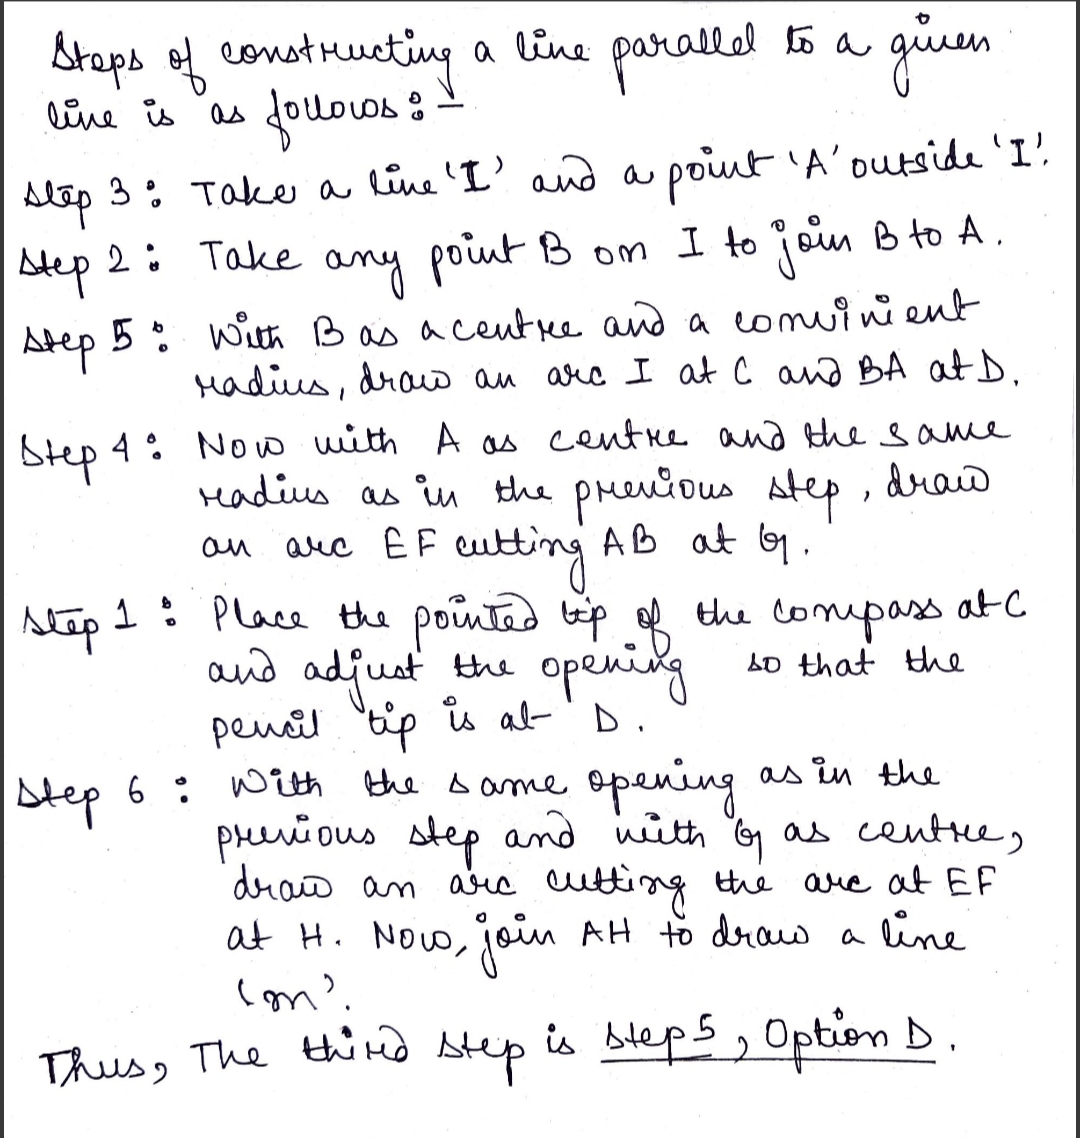 Steps of constructing a line parallel to a given
line is as follows :-
Step 3 : Take a line 'I' and a point 'A' outside 'I'.
Step 2 : Take any point B on I to join B to A.
Step 5 : With B as a centre and a convinient
radius, draw an arc I at C and BA at D.
Step 4 : Now with A as centre and the same
radius as in the previous step, draw
an arc EF cutting AB at G.
Step 1 : Place the pointed tip of the compass at C
and adjust the opening so that the
pencil tip is at D.
Step 6 : With the same opening as in the
previous step and with G as centre,
draw an arc cutting the arc at EF
at H. Now, join AH to draw a line
'm'.
Thus, The third step is Step 5, Option D.